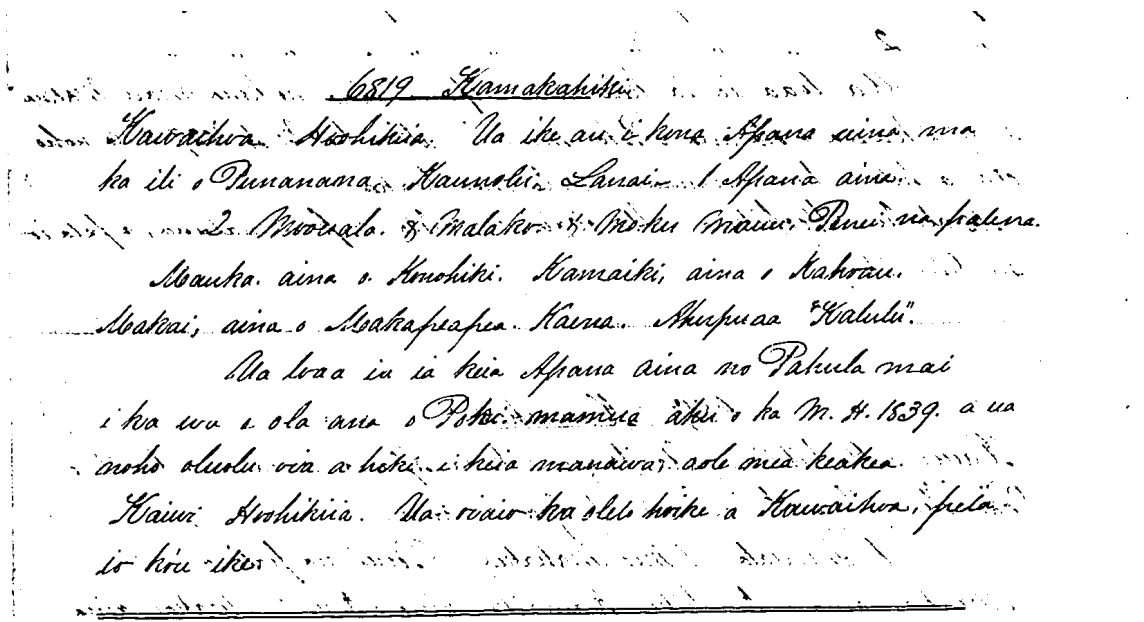 2
6819 Kamakahiki
Kawaihoa Hoohikiia. Ua ike au i kona Apana aina ma
ka ili o Punanana, Kaunolu, Lanai. 1 Apana aina.
2 Moouala. & Malako & Moku mauu. Penei na palena.
Mauka. aina o Konohiki. Kamaiki, aina o Kahoau.
Makai, aina o Makapeapea. Kaena. Ahupuaa "Kalulu".
Ua loaa ia ia keia Apana aina no Pahula mai
i ka wa e ola ana o Poki mamua aku o ka M. H. 1839. a ua
noho oluolu oia a hiki i keia manawa, aole mea keakea.
Kaiwi Hoohikiia. Ua oiaio ka olelo hoike a Kawaihoa, pela
io ko'u ike.